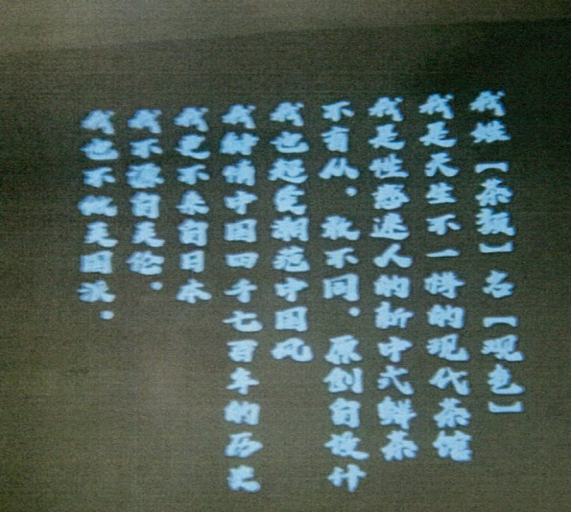 我姓【茶颜】名【观色】
我是天生不一样的现代茶馆
我是性感迷人的新中式鲜茶
不盲从。敢不同。原创自设计
我也超爱潮范中国风
我钟情中国四千七百年的历史
我更不来自日本
我不源自英伦。
我也不似美国派。